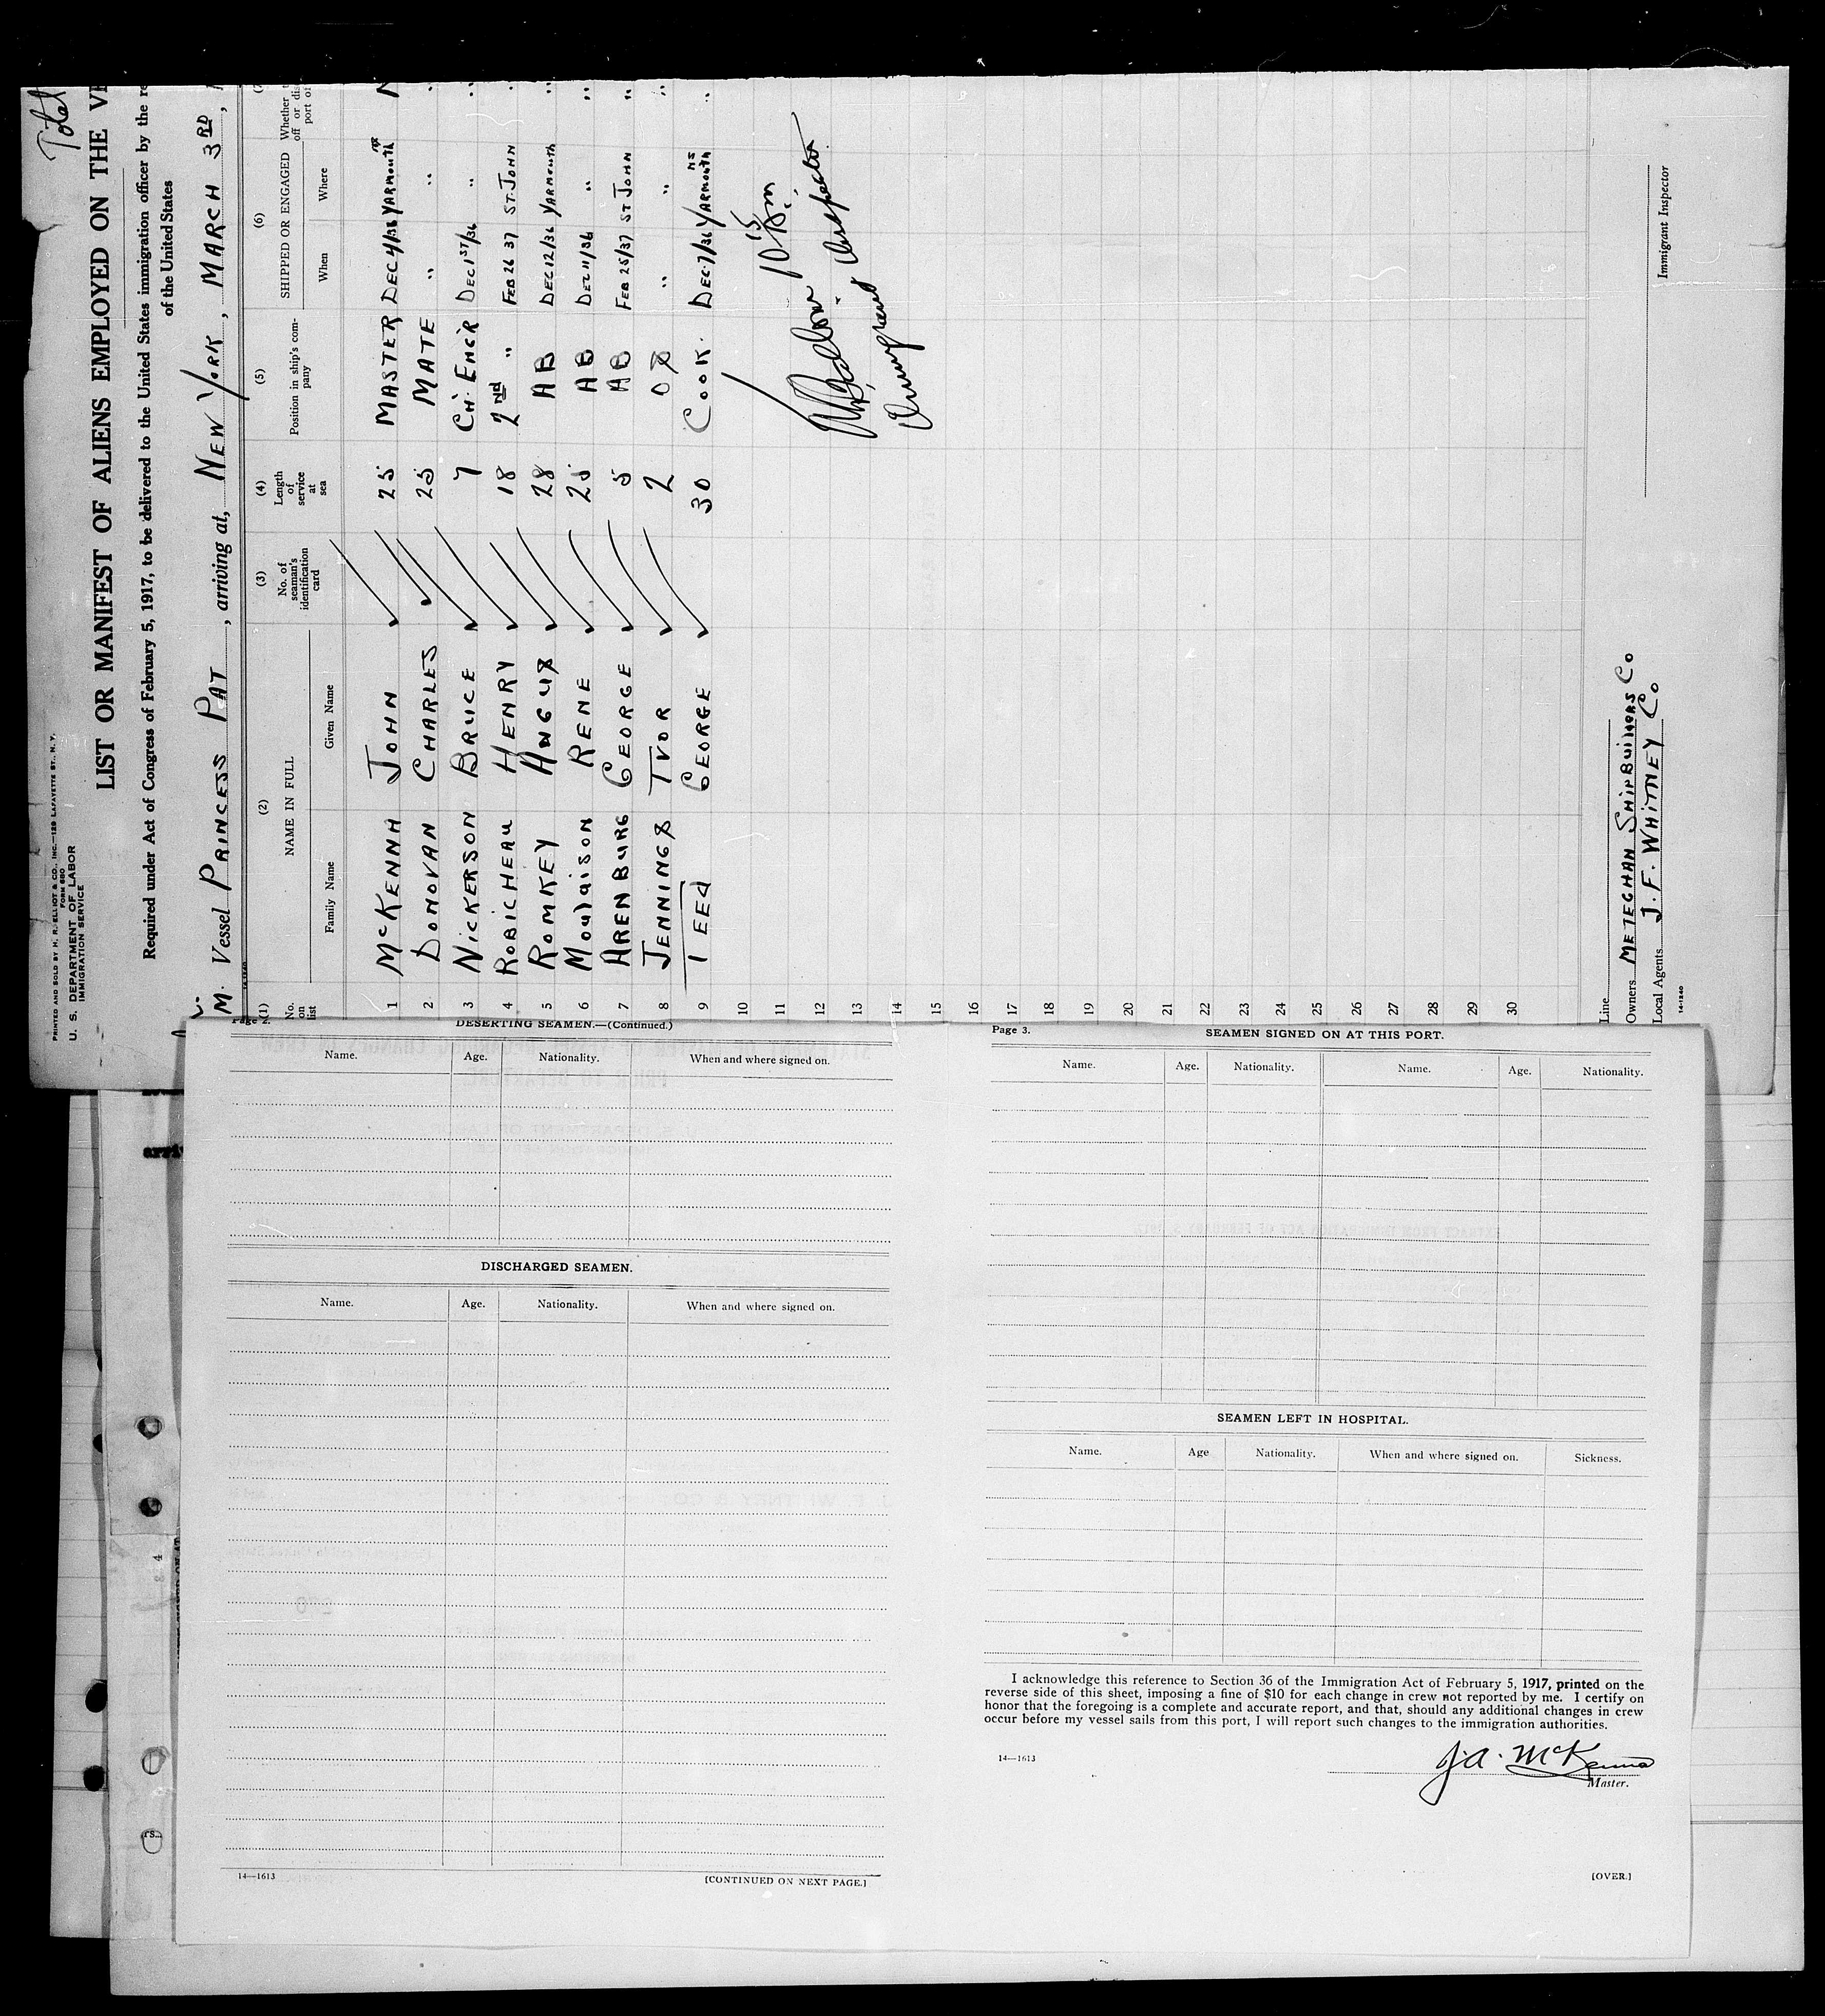 Total
PRINTED AND SOLD BY H. R. ELLIOT & CO., INC.—129 LAFAYETTE ST., N. Y.
FORM 680
U. S. DEPARTMENT OF LABOR
IMMIGRATION SERVICE
LIST OR MANIFEST OF ALIENS EMPLOYED ON THE VE
Required under Act of Congress of February 5, 1917, to be delivered to the United States immigration officer by the re
of the United States
M. Vessel PRINCESS PAT, arriving at, NEW YORK, MARCH 3RD,
(1) (2) (3) (4) (5) (6)
No. on list NAME IN FULL No. of seaman's identification card Length of service at sea Position in ship's company SHIPPED OR ENGAGED Whether
off or dis
port of
Family Name Given Name When Where
1 McKENNA JOHN 25 MASTER DEC 4/36 YARMOUTH NS
2 DONOVAN CHARLES 25 MATE " "
3 NICKERSON BRUCE 7 CH. ENG'R DEC 1ST/36 "
4 ROBICHEAU HENRY 18 2ND " FEB 26 37 ST. JOHN
5 ROMKEY ANGUS 28 AB DEC 12/36 YARMOUTH "
6 MOULAISON RENE 25 AB DEC 11/36 " "
7 ARENBURG GEORGE 5 AB FEB 25/37 ST JOHN "
8 JENNINGS IVOR 2 OS " " "
9 TEED GEORGE 30 COOK. DEC. 7/36 YARMOUTH NS "
10 15 Am
Immigrant Inspector
10
11
12
13
14
15
16
17
18
19
20
21
22
23
24
25
26
27
28
29
30
Line
Owners METEGHAN SHIPBUILDERS CO
Local Agents J. F. WHITNEY CO
Immigrant Inspector
14-1240
Page 2.
DESERTING SEAMEN.—(Continued.)
Name. Age. Nationality. When and where signed on.
DISCHARGED SEAMEN.
Name. Age. Nationality. When and where signed on.
14—1613 [CONTINUED ON NEXT PAGE.]
Page 3.
SEAMEN SIGNED ON AT THIS PORT.
Name. Age. Nationality. Name. Age. Nationality.
SEAMEN LEFT IN HOSPITAL.
Name. Age Nationality. When and where signed on. Sickness.
I acknowledge this reference to Section 36 of the Immigration Act of February 5, 1917, printed on the
reverse side of this sheet, imposing a fine of $10 for each change in crew not reported by me. I certify on
honor that the foregoing is a complete and accurate report, and that, should any additional changes in crew
occur before my vessel sails from this port, I will report such changes to the immigration authorities.
14—1613
J.A. McKenna
Master.
[OVER.]